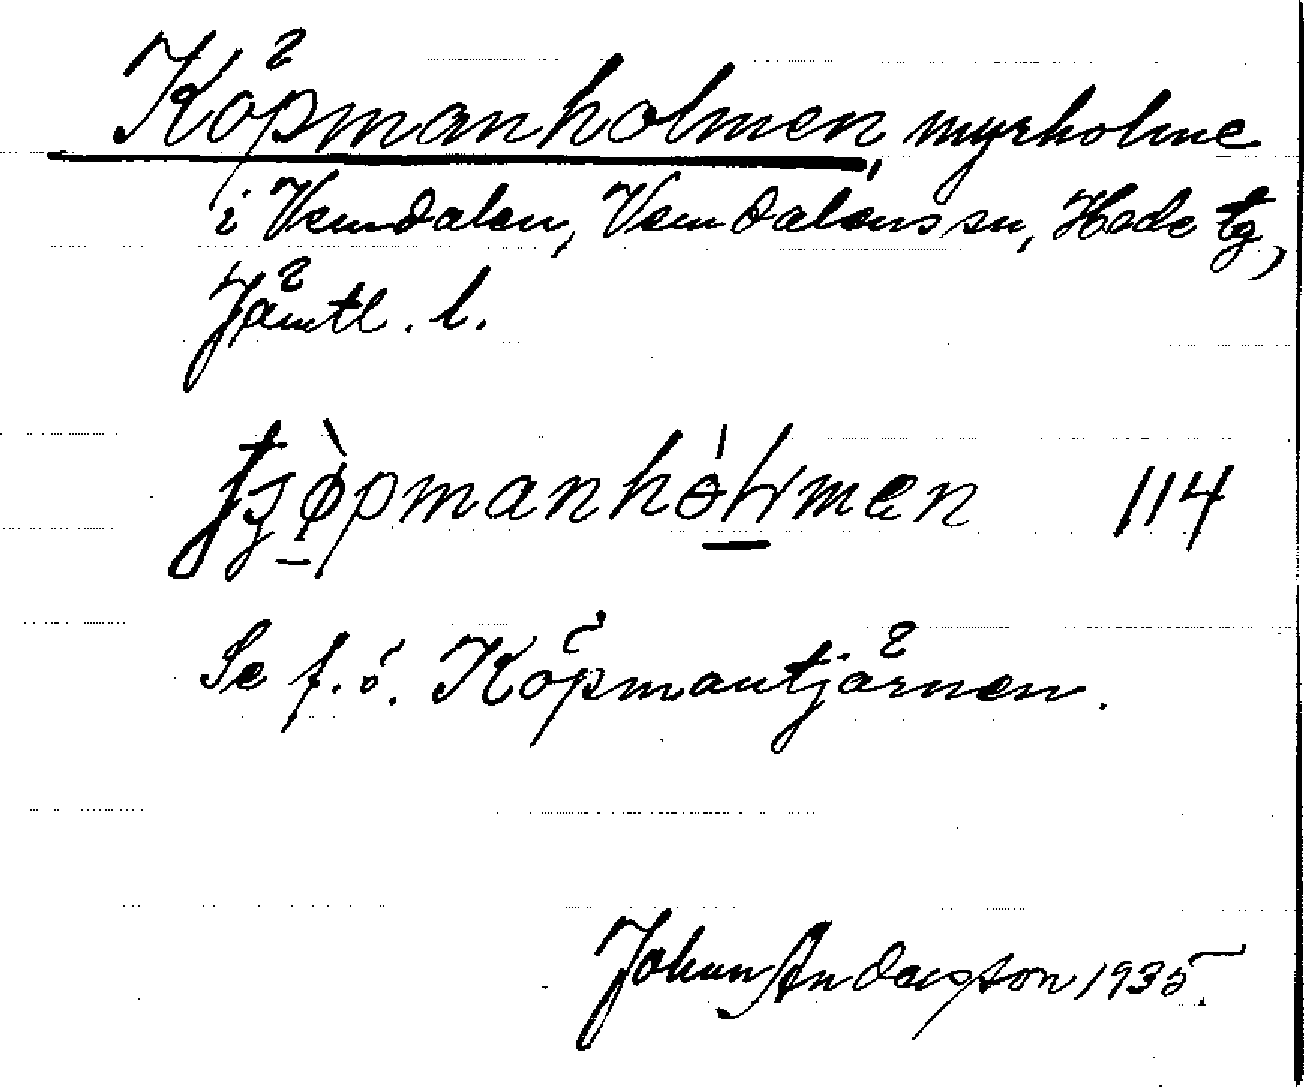 Köpmanholmen, myrholme
i Vemdalen, Vemdalens sn, Hede tg,
Jämtl. l.
114
Se f. ö. Köpmantjärnen.
Johan Andersson 1935.